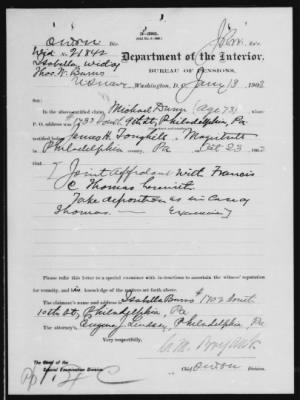 3-1082.
Wid No. 21842
Isabella, wid of
Thos. W. Burns
Department of the Interior,
BUREAU OF PENSIONS,
Washington, D. C., Jany 13, 1903
SIR:
In the above-entitled claim, Michael Dunn (age 73) whose
P. O. address was 1737 South 9th St, Philadelphia, Pa
testified before James H.
Philadelphia county, Pa 23
that
Joint affidavit with Francis
C. Thomas
Take deposition as in case of
Thomas.
Please refer this letter to a special examiner with instructions to ascertain the witness' reputation
for veracity, and his knowledge of the matters set forth above.
The claimant's name and address is Isabella Burns #1702 South
10th St, Philadelphia, Pa
The attorney's, Eugene J. Lindsay, Philadelphia, Pa.
Very respectfully,
Chief Division.
The Chief of the
Special Examination Division.